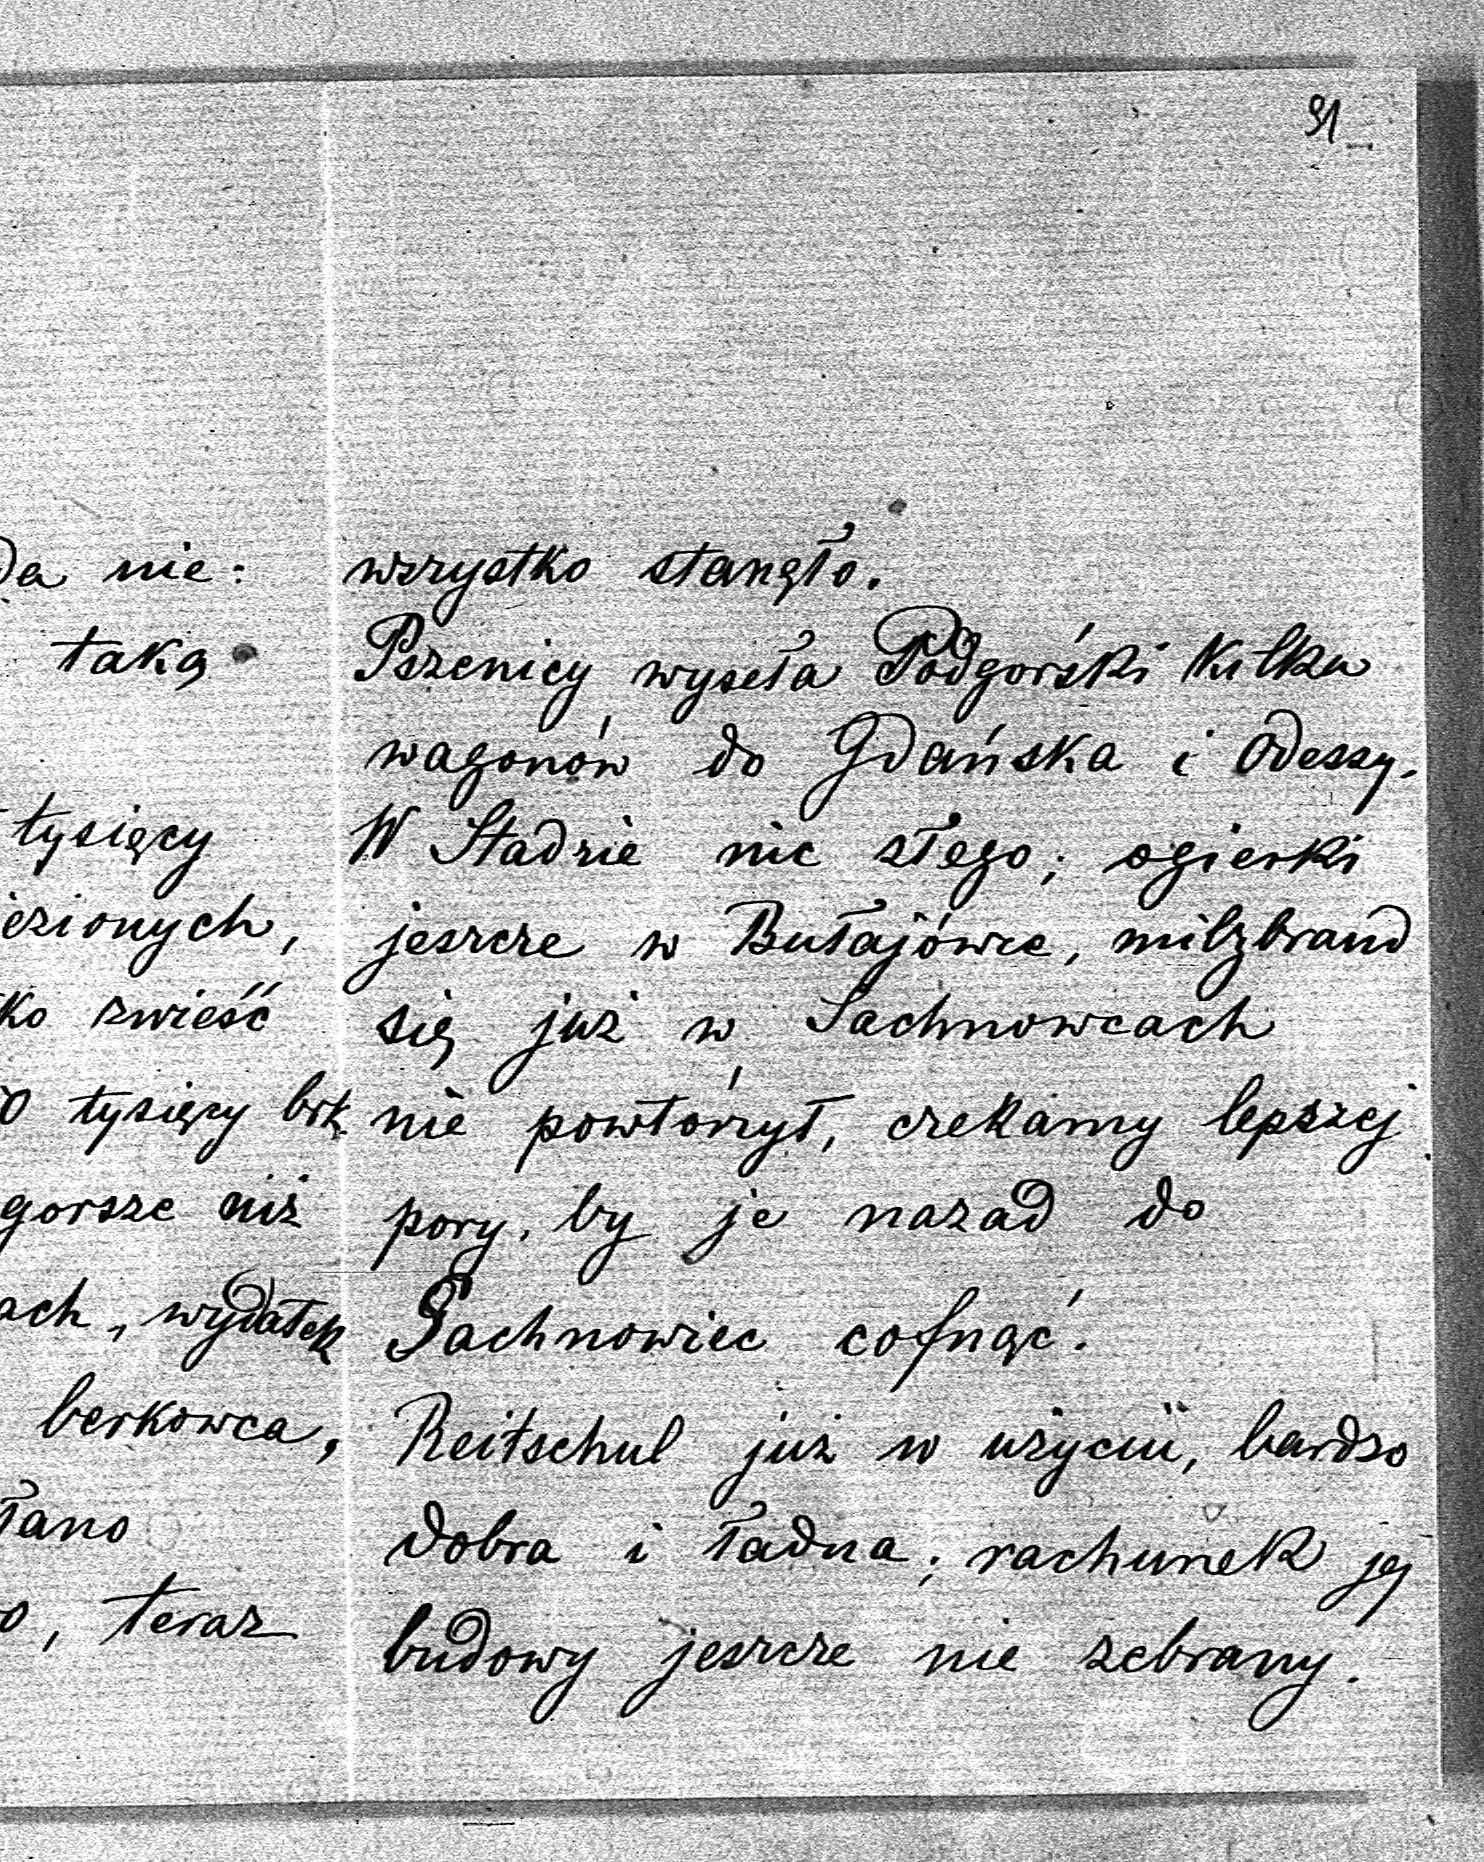 91
da nie:
taką
tysięcy
iezionych,
ko zwieść
0 tysięcy brk.
gorsze niż
ach, wydatek
berkowca,
łano
o, teraz
wszystko stanęło.
Pszenicy wyseła Podgorśki kilka
wagonów do Gdańska i Odessy.
W Stadzie nic złego; ogierki
jeszcze w Bułajówce, milzbrand
się już w Sachnowcach
nie powtórzył, czekamy lepszej
pory, by je nazad do
Sachnowiec cofnąć.
Reitschul już w użyciu, bardzo
dobra i ładna; rachunek jej
budowy jeszcze nie zebrany.